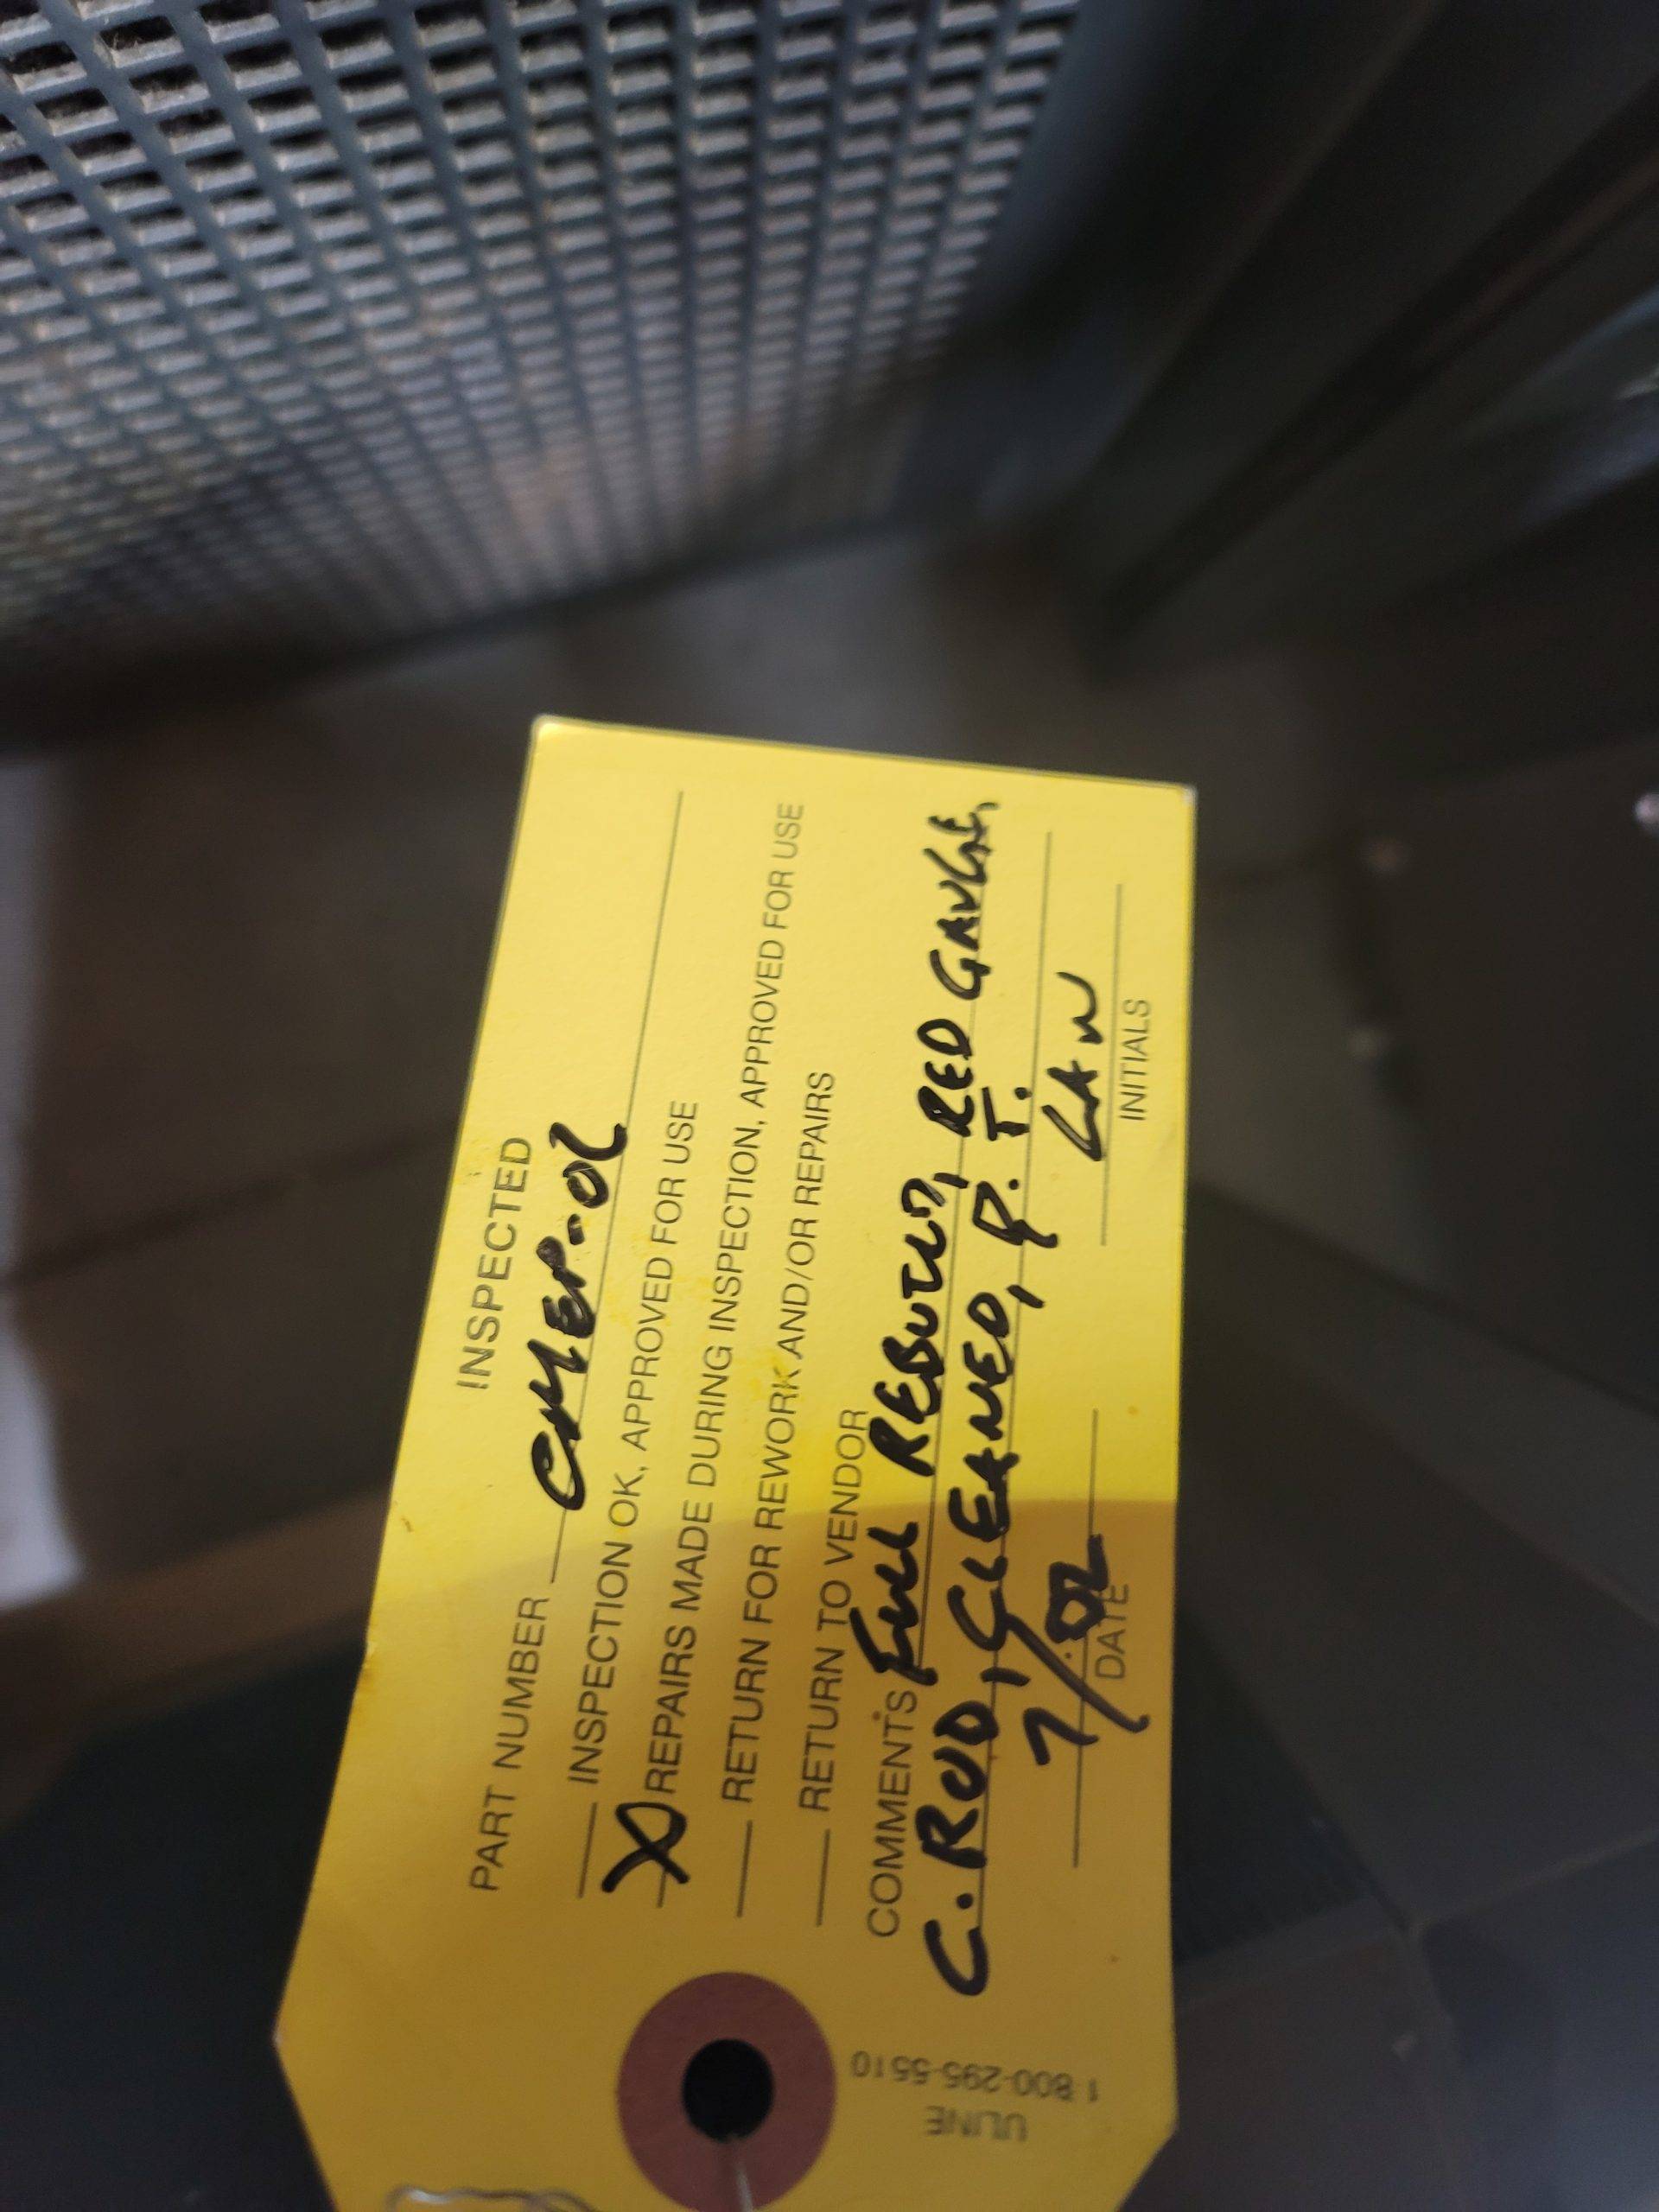 INSPECTED
PART NUMBER CMEP-OL
INSPECTION OK, APPROVED FOR USE
X REPAIRS MADE DURING INSPECTION, APPROVED FOR USE
RETURN FOR REWORK AND/OR REPAIRS
RETURN TO VENDOR
COMMENTS FULL REBUILD, RED GAUGE,
C. ROD, CLEANED, P.T.
7/ LAW
DATE INITIALS
ULINE
1-800-295-5510